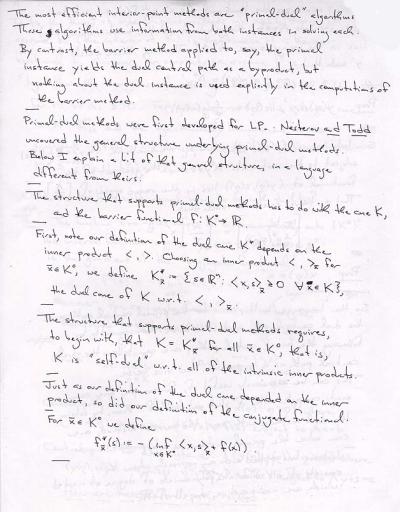 The most efficient interior-point methods are "primal-dual" algorithms
These algorithms use information from both instances in solving each.
By contrast, the barrier method applied to, say, the primal
instance yields the dual central path as a byproduct, but
nothing about the dual instance is used explicitly in the computations of
the barrier method.
Primal-dual methods were first developed for LP. Nesterov and Todd
uncovered the general structure underlying primal-dual methods.
Below I explain a bit of that general structure, in a language
different from theirs.
The structure that supports primal-dual methods has to do with the cone K,
and the barrier functional f: K° → ℝ.
First, note our definition of the dual cone K* depends on the
inner product < , >. Choosing an inner product < , >_x̄ for
x̄ ∈ K°, we define K*_x̄ := {s ∈ ℝⁿ : <x,s>_x̄ ≥ 0 ∀ x ∈ K},
the dual cone of K w.r.t. < , >_x̄.
The structure that supports primal-dual methods requires,
to begin with, that K = K*_x̄ for all x̄ ∈ K°, that is,
K is "self-dual" w.r.t. all of the intrinsic inner products.
Just as our definition of the dual cone depended on the inner
product, so did our definition of the conjugate functional.
For x̄ ∈ K° we define
f*_x̄(s) := - (inf_{x∈K°} <x,s>_x̄ + f(x)).